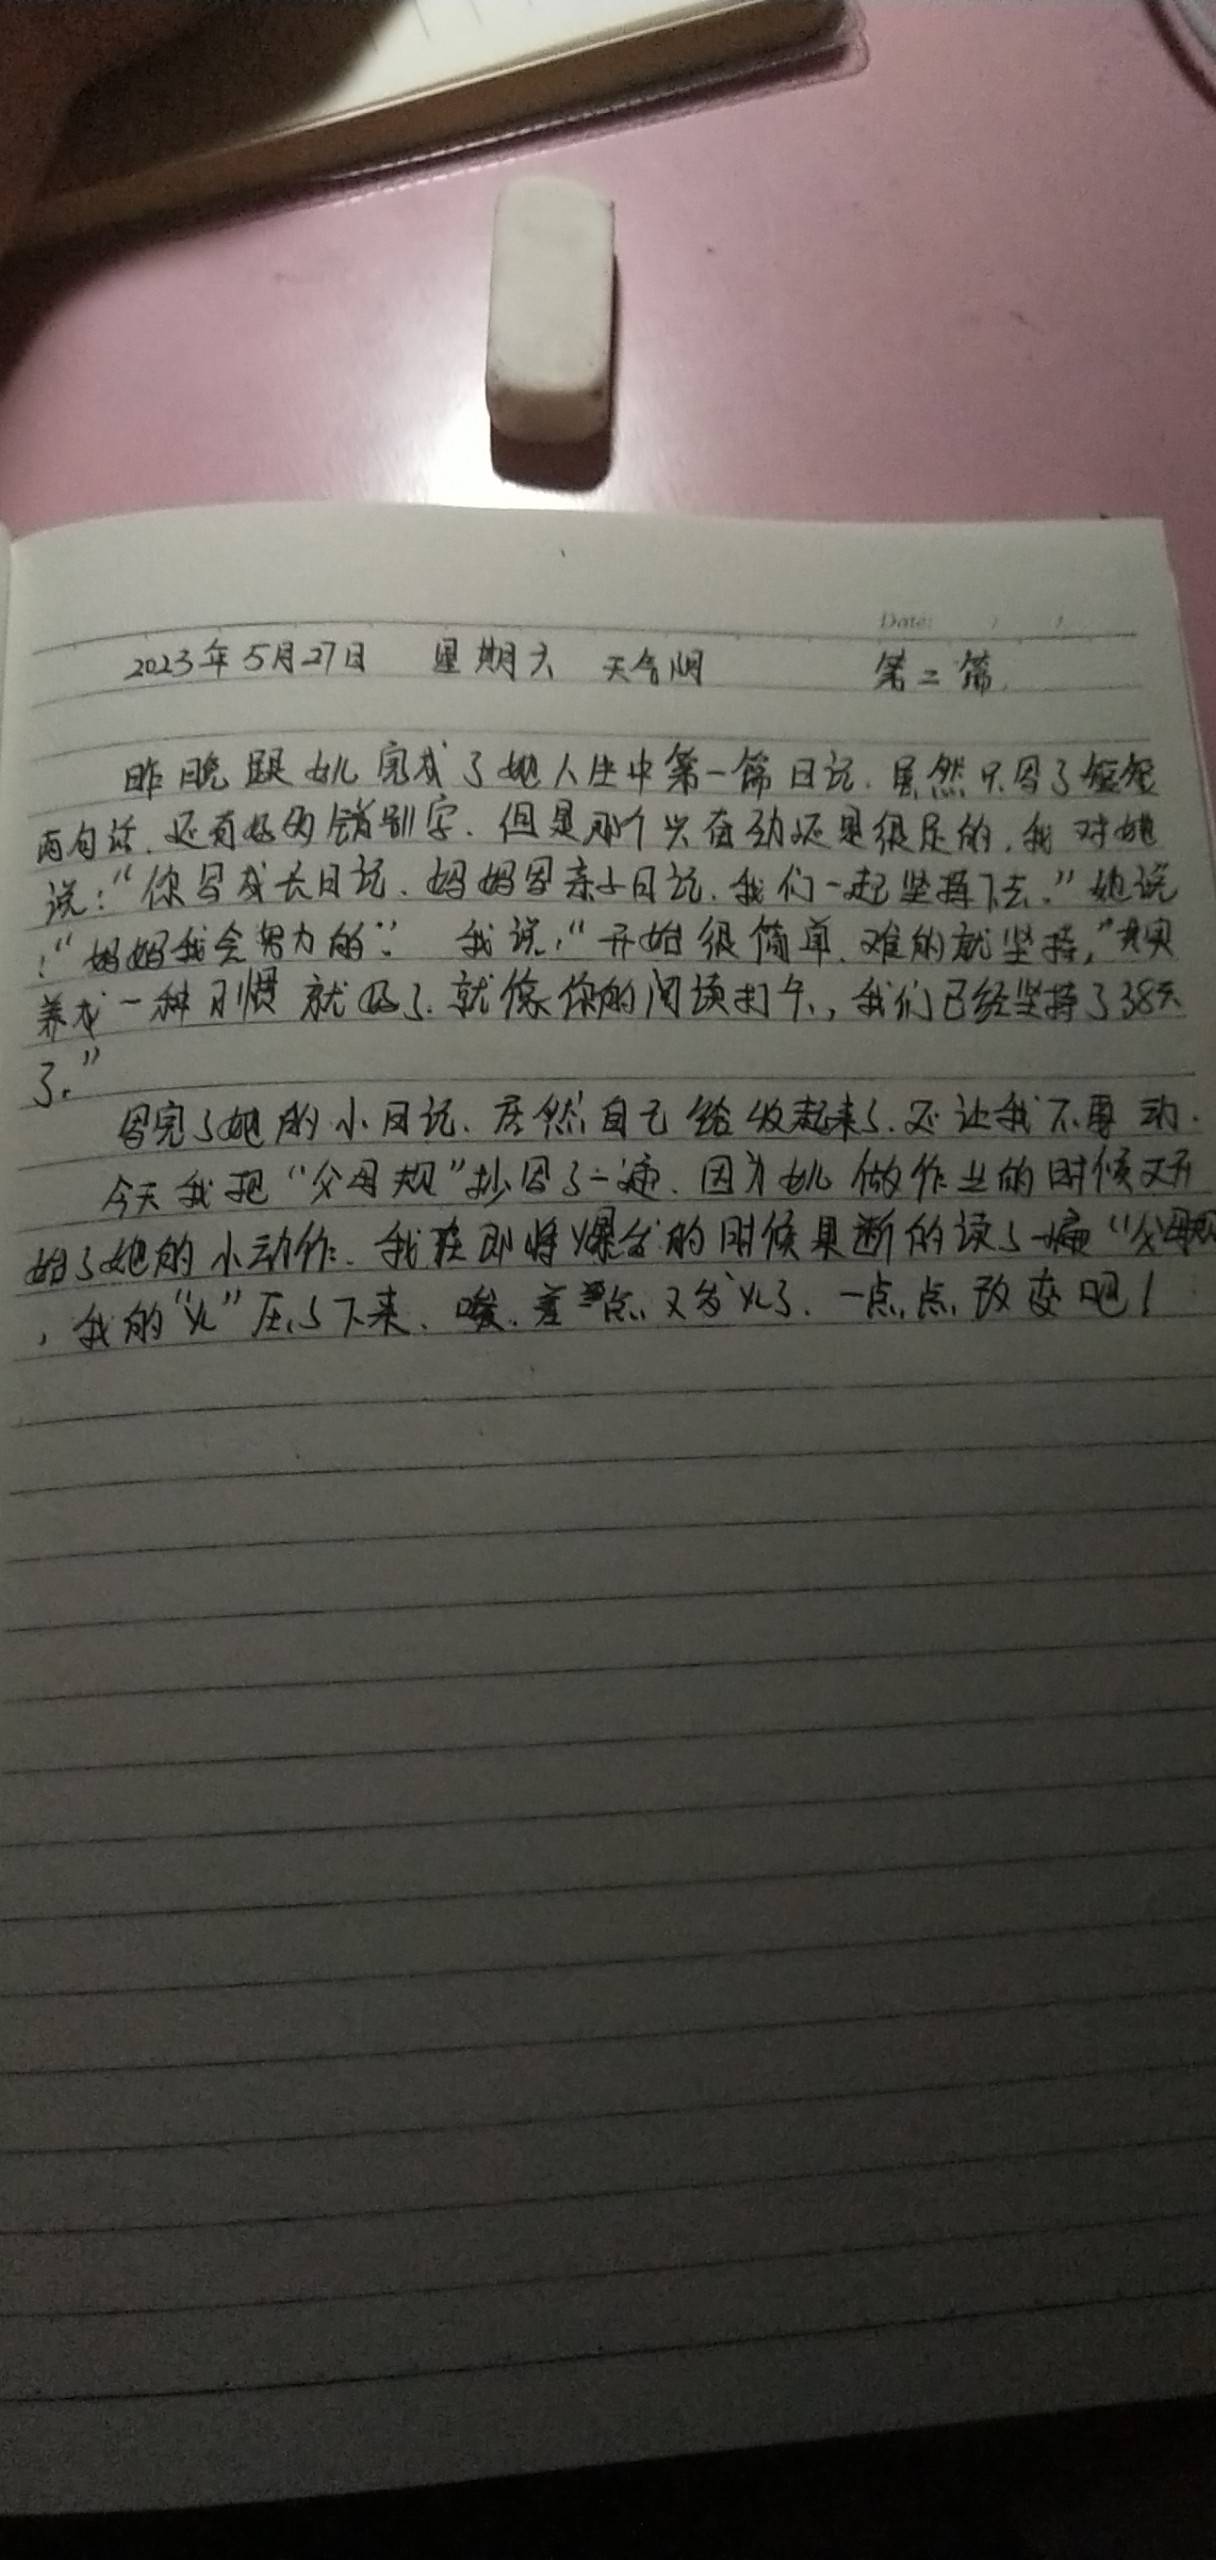 Date:
2023年5月27日 星期六 天气阴 第二篇.
昨晚跟女儿完成了她人生中第一篇日记.虽然只写了短短
两句话.还有好多错别字.但是那个兴奋劲还是很足的.我对她
说:“你写成长日记.妈妈写亲子日记.我们一起坚持下去.”她说
:“妈妈我会努力的.” 我说:“开始很简单.难的就坚持,”其实
养成一种习惯就好了.就像你的阅读打卡,我们已经坚持了38天
了.”
写完了她的小日记.居然自己给收起来了.还让我不要动.
今天我把“父母规”抄写了一遍.因为女儿做作业的时候又开
始了她的小动作.我在即将爆发的时候果断的读了一遍“父母规
,我的“火”压了下来.唉.差点又发火了.一点点改变吧!